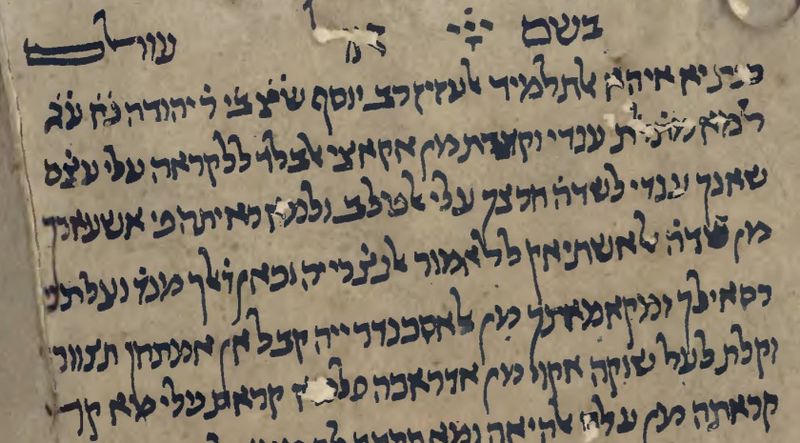 בשם ייי אל עולם
איהא אלתלמיד אלעזיז רב יוסף ש̇צ̇ בר̇ ר̇ יהודה נ̇ע̇
למא מת̇לת ענדי וקצדת מן אקאצי אלבלאד ללקראה עלי עט̇ם
שאנך ענדי לשדה̈ חרצך עלי אלטלב ולמא ראיתה פי אשעארך
מן שדה̈ אלאשתיאק ללאמור אלנט̇ריה וכאן ד̇לך מנד̇ וצלתני
רסאילך ומקאמאתך מן אלאסכנדרייה קבל אן אמתחן תצורך
וקלת לעל שוקה אקוי מן אדראכה פלמא קראת עלי מא קד
קראתה מן עלם אלהיאה ומא